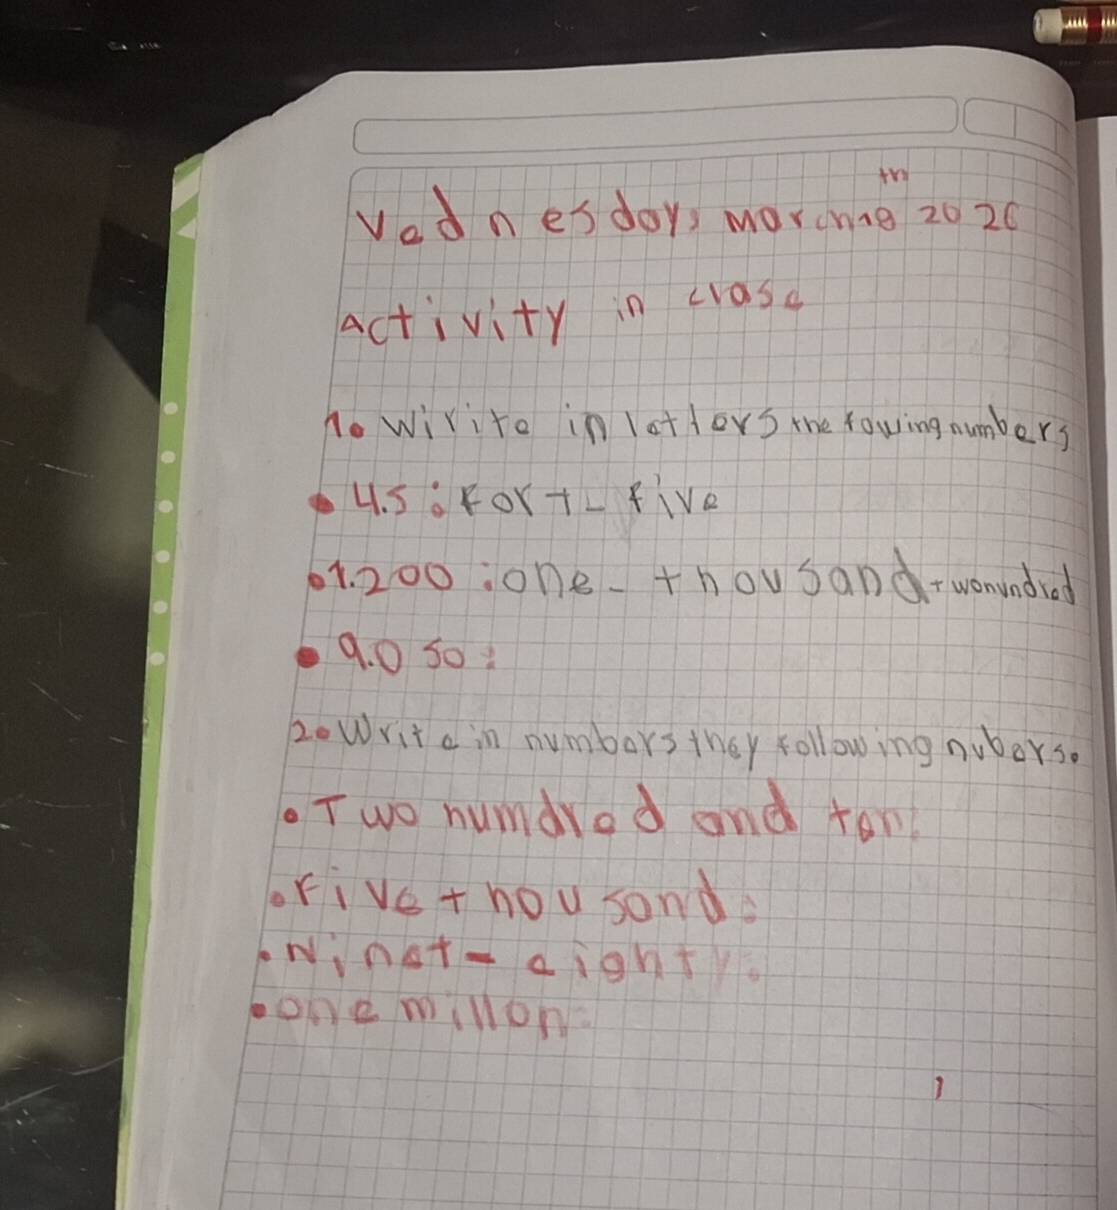 Vednesday, March 18th 2026
Activity in crass
1. Wirite in letters the fowing numbers
• 4.5: Fort-five
• 1.200: one-thousand twonundred
• 9.050:
2. Write in numbers they following nubers.
• Two numdred and ten:
• Five thousand:
• Ninet-eighty:
• one millon: